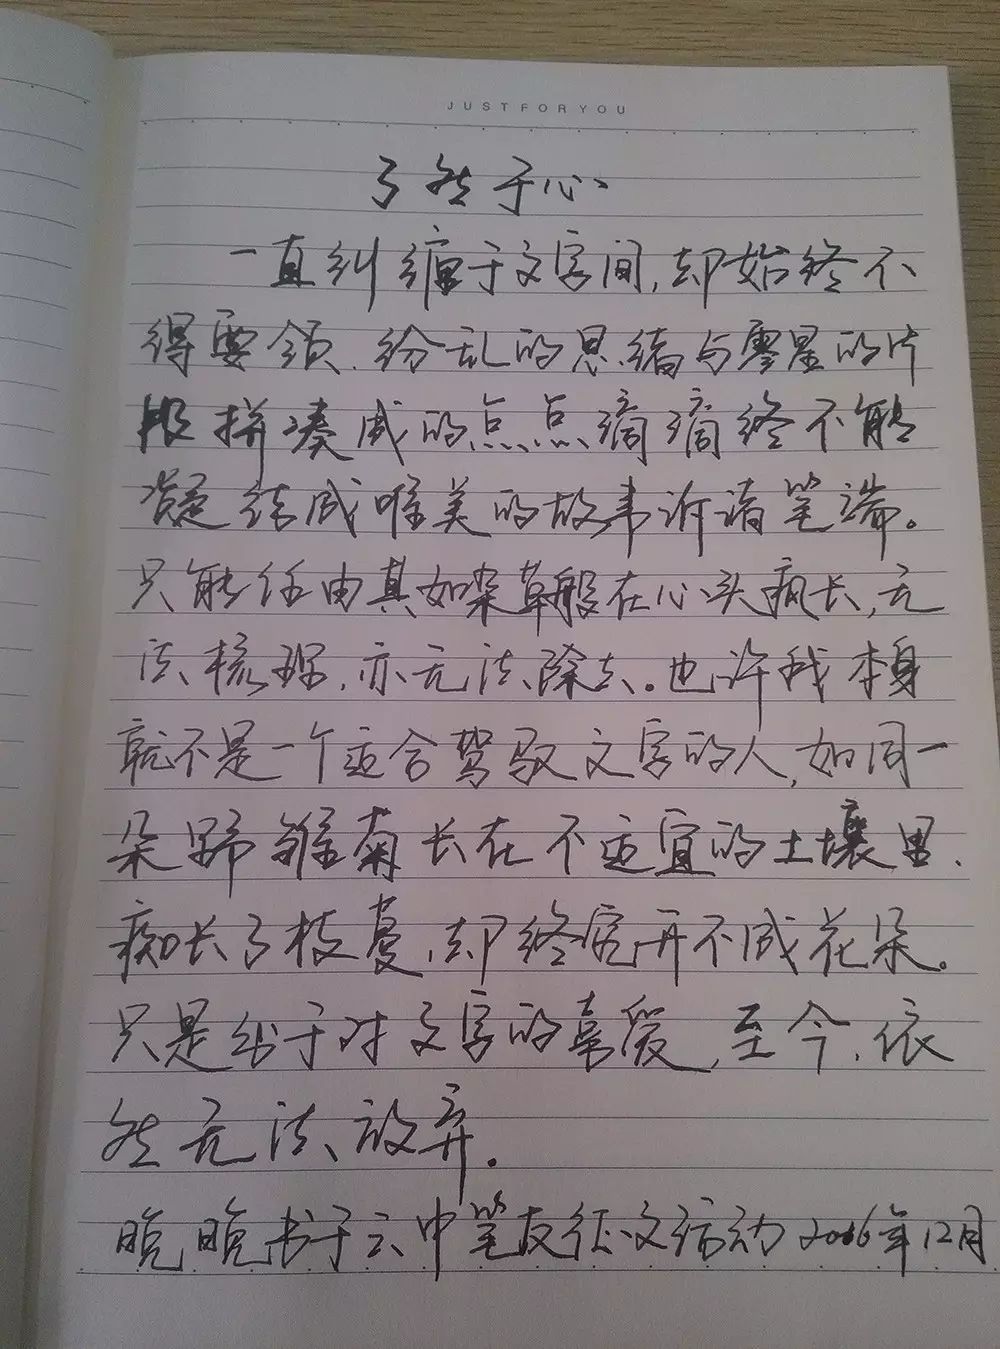 JUST FOR YOU
了然于心
一直纠缠于文字间,却始终不
得要领.纷乱的思绪与零星的片
段拼凑成的点点滴滴终不能
凝练成唯美的故事诉诸笔端。
只能任由其如杂草般在心头疯长,无
法梳理,亦无法除去.也许我本身
就不是一个适合驾驭文字的人,如同一
朵雏菊长在不适宜的土壤里.
痴长了枝蔓,却终究开不成花朵。
只是终于对文字的喜爱,至今.依
然无法放弃.
晚晚书于云中笔友征文活动2016年12月